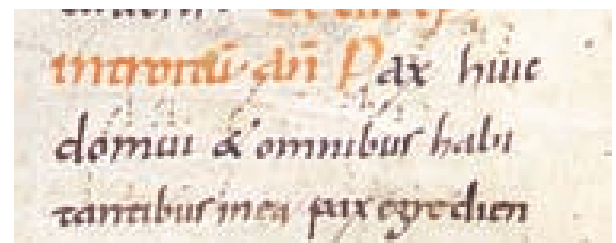 introitū añ Pax huic
domui & omnibus habi
tantibus in ea pax egredien